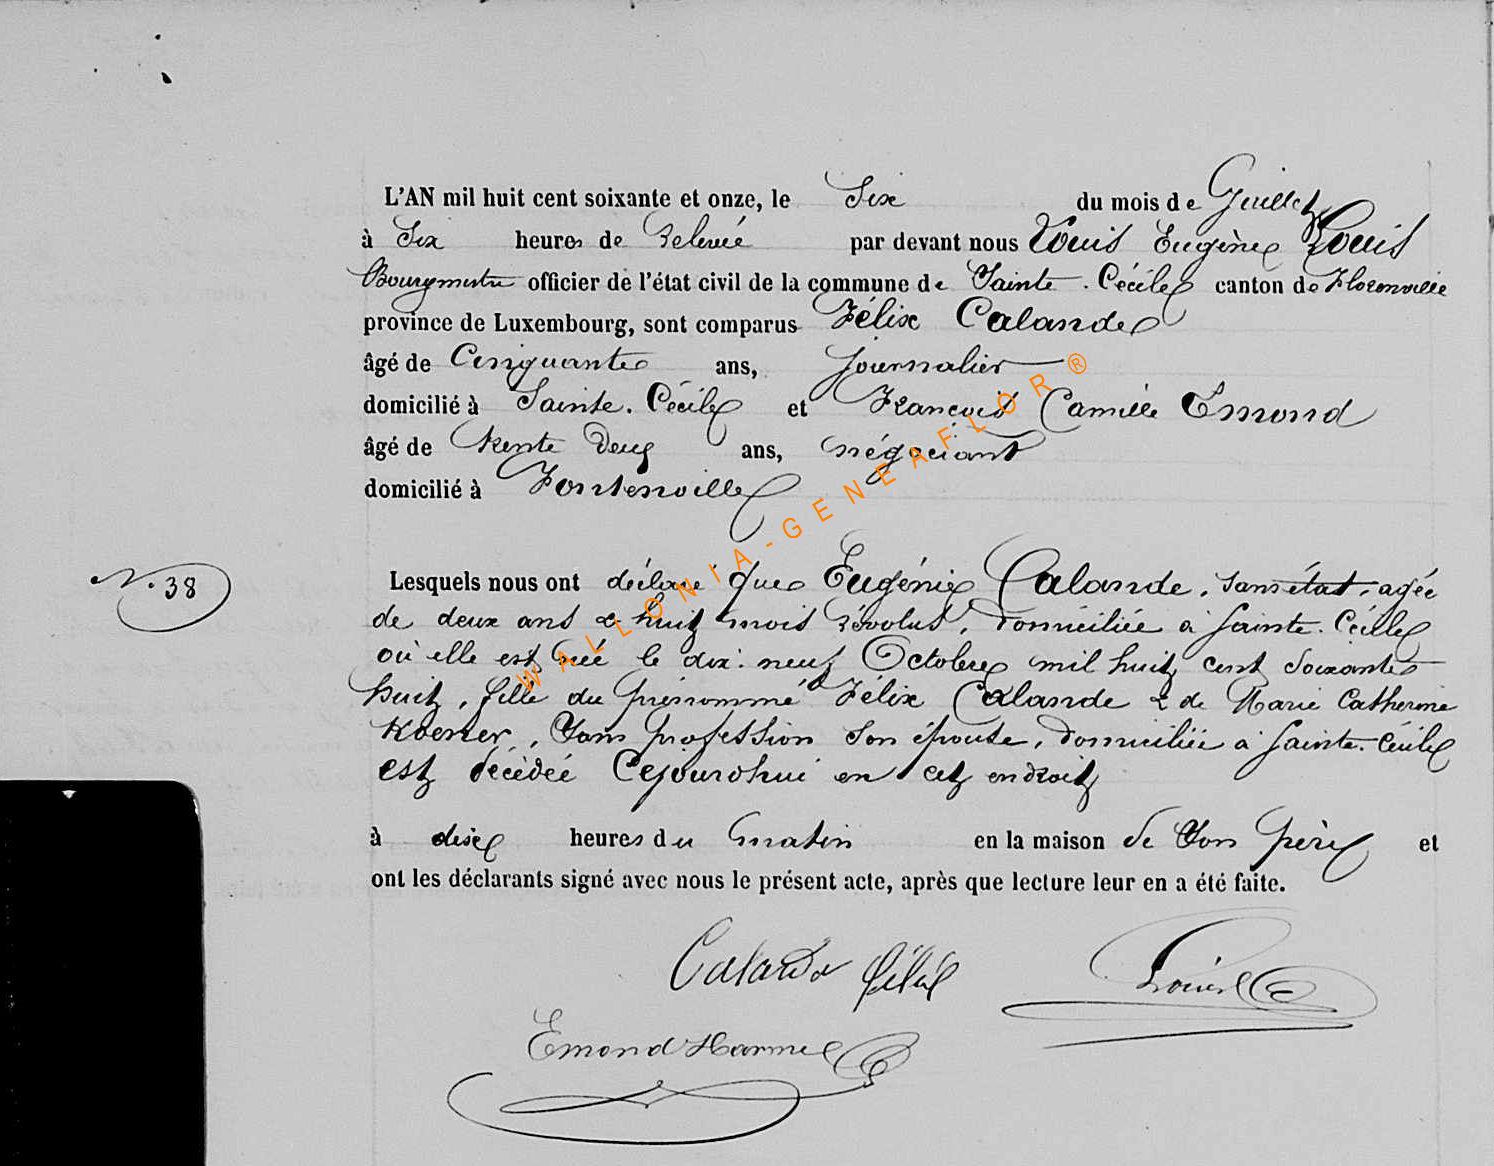 L'AN mil huit cent soixante et onze, le Six du mois de Juillet
à Six heures de Relevée par devant nous Louis Eugène Louis
Bourgmestre officier de l'état civil de la commune de Sainte-Cécile canton de Florenville
province de Luxembourg, sont comparus Félix Calande
âgé de Cinquante ans, journalier
domicilié à Sainte-Cécile et François Camille Emond
âgé de trente Deux ans, négociant
domicilié à Fontenoille
N. 38
Lesquels nous ont déclaré que Eugénie Calande, sans état, agée
de deux ans & huit mois Révolus, Domiciliée à Sainte-Cécile
où elle est née le dix-neuf Octobre mil huit cent Soixante
huit, fille du prénommé Félix Calande & de Marie Catherine
Koener, Sans profession son épouse, Domiciliée à Sainte-Cécile
est décédée Cejourdhui en cet endroit
à dix heures du matin en la maison de Son père et
ont les déclarants signé avec nous le présent acte, après que lecture leur en a été faite.
Calande félix
Louis
Emond Harmel
WALLONIA-GENEAFLOR®